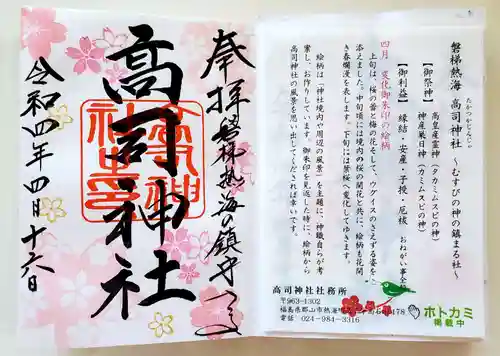 奉拝 磐梯熱海の鎮守
高司神社
令和四年四月十六日
磐梯熱海 高司神社 ～むすびの神の鎮まる社～
たかつかさじんじゃ
【御祭神】 高皇産霊神（タカミムスビの神）
神産巣日神（カミムスビの神）
【御利益】 縁結・安産・子授・厄祓
四月 変化御朱印の絵柄
上旬は、桜の蕾と梅の花をそして、ウグイスのさえずる姿を
添えました。中旬頃には境内の桜の開花と共に、絵柄も花開
き春爛漫を表します。下旬には葉桜へ変化してゆきます。
絵柄は「神社境内や周辺の風景」を主題に、神職自らが考
案し、お作りしています。御朱印を見返した時に、絵柄から
高司神社の風景を思い出してくだされば幸いです。
高司神社社務所
〒963-1302
福島県郡山市熱海町
478
電話: 024-984-3316
ホトカミ
掲載中